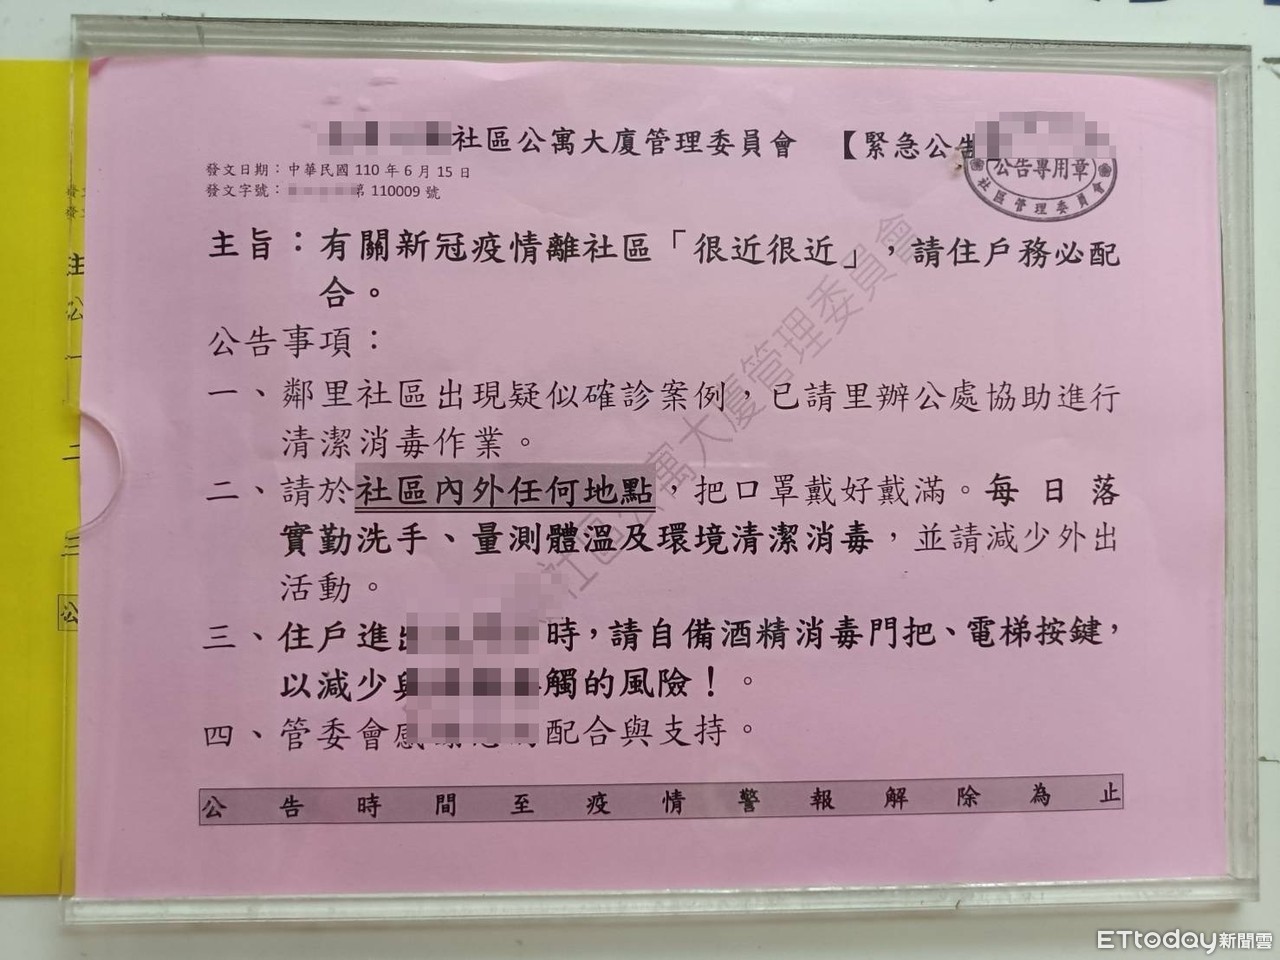 社區公寓大廈管理委員會 【緊急公告
公告專用章
社區管理委員會
發文日期：中華民國 110 年 6 月 15 日
發文字號：第 110009 號
主旨：有關新冠疫情離社區「很近很近」，請住戶務必配
合。
公告事項：
一、鄰里社區出現疑似確診案例，已請里辦公處協助進行
清潔消毒作業。
二、請於社區內外任何地點，把口罩戴好戴滿。每日落
實勤洗手、量測體溫及環境清潔消毒，並請減少外出
活動。
三、住戶進出時，請自備酒精消毒門把、電梯按鍵，
以減少與觸的風險！。
四、管委會感配合與支持。
公告時間至疫情警報解除為止
社區公寓大廈管理委員會
ETtoday新聞雲